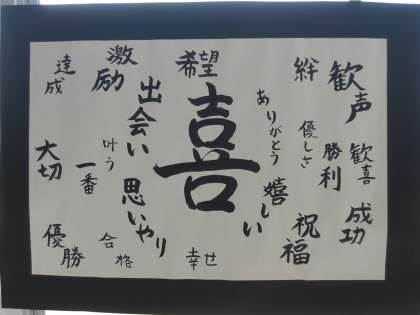 歓声
絆
希望
激励
達成
歓喜
勝利
優しさ
ありがとう
喜
出会い
成功
祝福
嬉しい
思いやり
叶う
一番
大切
幸せ
合格
優勝